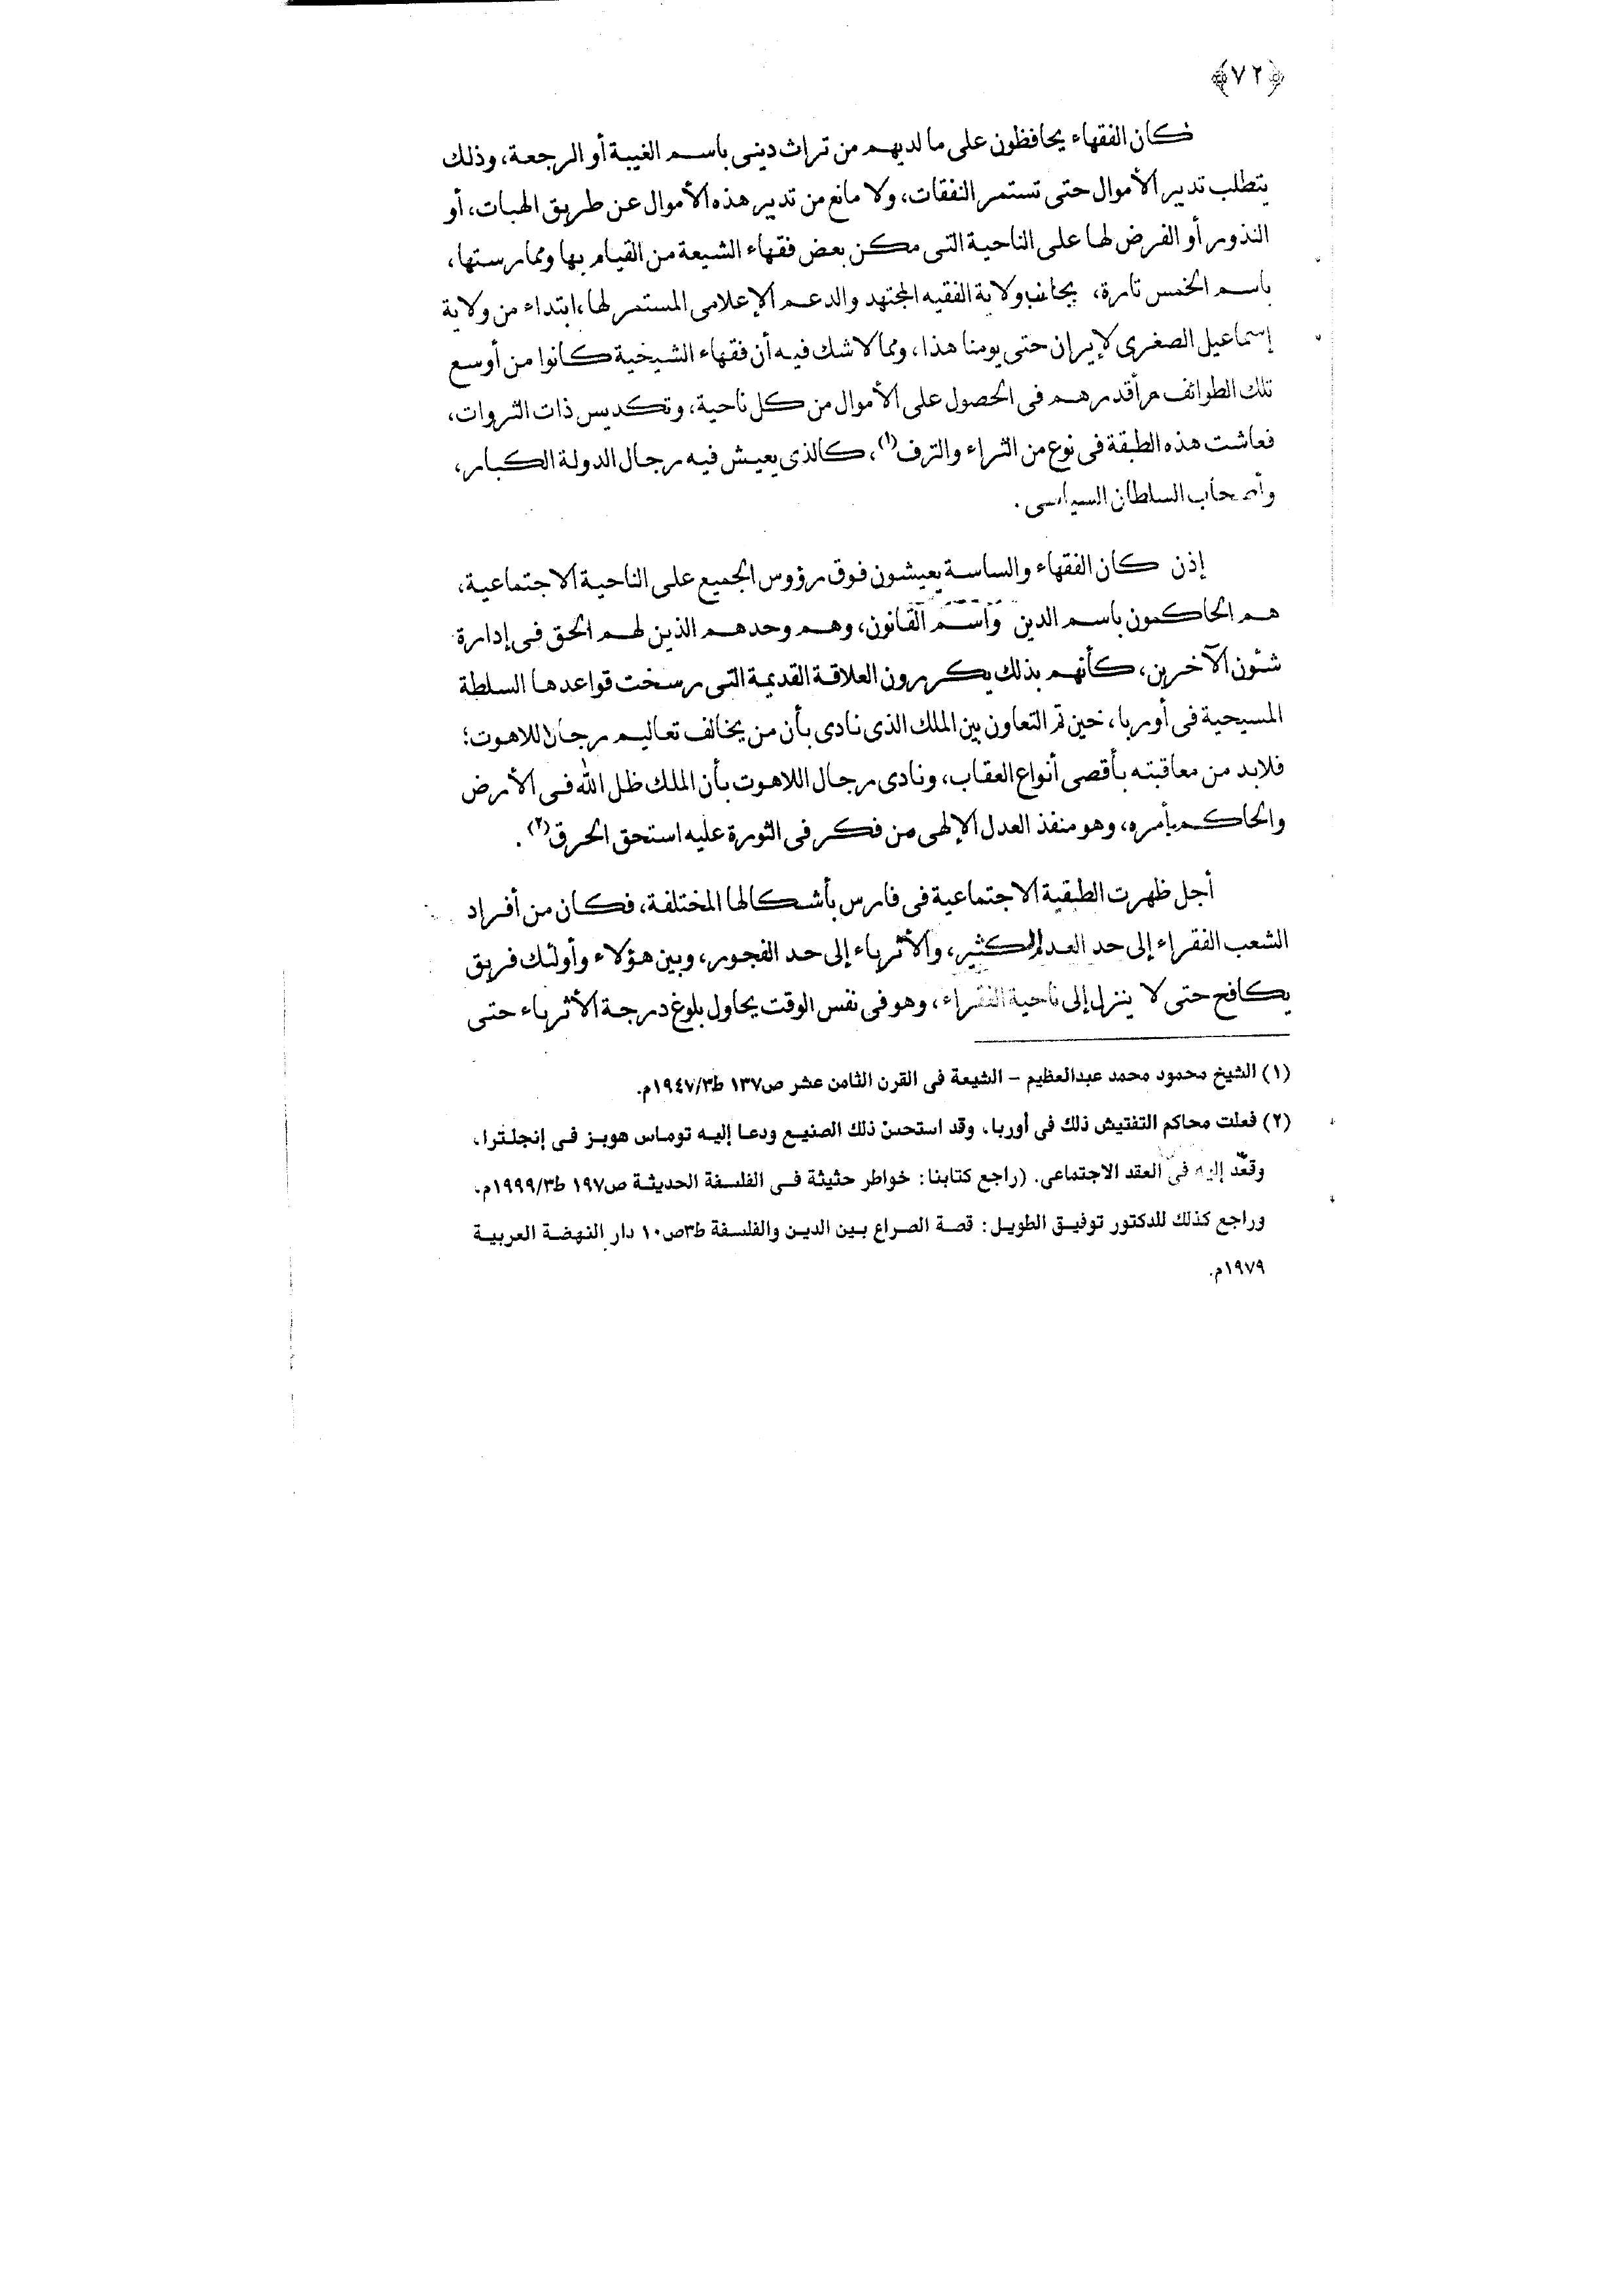 ﴿٧٢﴾
فكان الفقهاء يحافظون على ما لديهم من تراث دينى باسم الغيبة أو الرجعة، وذلك
يتطلب تدبير الأموال حتى تستمر النفقات، ولا مانع من تدبير هذه الأموال عن طريق الهبات، أو
النذور أو الفرض لها على الناحية التى مكن بعض فقهاء الشيعة من القيام بها وممارستها،
باسم الخمس تارة، بجانب ولاية الفقيه المجتهد والدعم الإعلامى المستمر لها، ابتداء من ولاية
إسماعيل الصغرى لإيران حتى يومنا هذا، ومما لا شك فيه أن فقهاء الشيخية كانوا من أوسع
تلك الطوائف وأقدرهم فى الحصول على الأموال من كل ناحية، وتكديس ذات الثروات،
فعاشت هذه الطبقة فى نوع من الثراء والترف(١)، كالذى يعيش فيه رجال الدولة الكبار،
وأصحاب السلطان السياسى.
إذن كان الفقهاء والساسة يعيشون فوق رؤوس الجميع على الناحية الاجتماعية،
هم الحاكمون باسم الدين واسم القانون، وهم وحدهم الذين لهم الحق فى إدارة
شئون الآخرين، كأنهم بذلك يكررون العلاقة القديمة التى رسخت قواعدها السلطة
المسيحية فى أوربا، حين تم التعاون بين الملك الذى نادى بأن من يخالف تعاليم رجال اللاهوت؛
فلابد من معاقبته بأقصى أنواع العقاب، ونادى رجال اللاهوت بأن الملك ظل الله فى الأرض
والحاكم بأمره، وهو منفذ العدل الإلهى من فكر فى الثورة عليه استحق الحرق(٢).
أجل ظهرت الطبقية الاجتماعية فى فارس بأشكالها المختلفة، فكان من أفراد
الشعب الفقراء إلى حد العدم الكثير، والأثرياء إلى حد الفجور، وبين هؤلاء وأولئك فريق
يكافح حتى لا ينزل إلى ناحية الفقراء، وهو فى نفس الوقت يحاول بلوغ درجة الأثرياء حتى
(١) الشيخ محمود محمد عبدالعظيم – الشيعة فى القرن الثامن عشر ص١٣٧ ط٣/١٩٤٧م.
(٢) فعلت محاكم التفتيش ذلك فى أوربا، وقد استحسن ذلك الصنيع ودعا إليه توماس هوبز فى إنجلترا،
وقعَّد إليه فى العقد الاجتماعى. (راجع كتابنا: خواطر حثيثة فى الفلسفة الحديثة ص١٩٧ ط٣/١٩٩٩م،
وراجع كذلك للدكتور توفيق الطويل: قصة الصراع بين الدين والفلسفة ط٣ص١٠ دار النهضة العربية
١٩٧٩م.